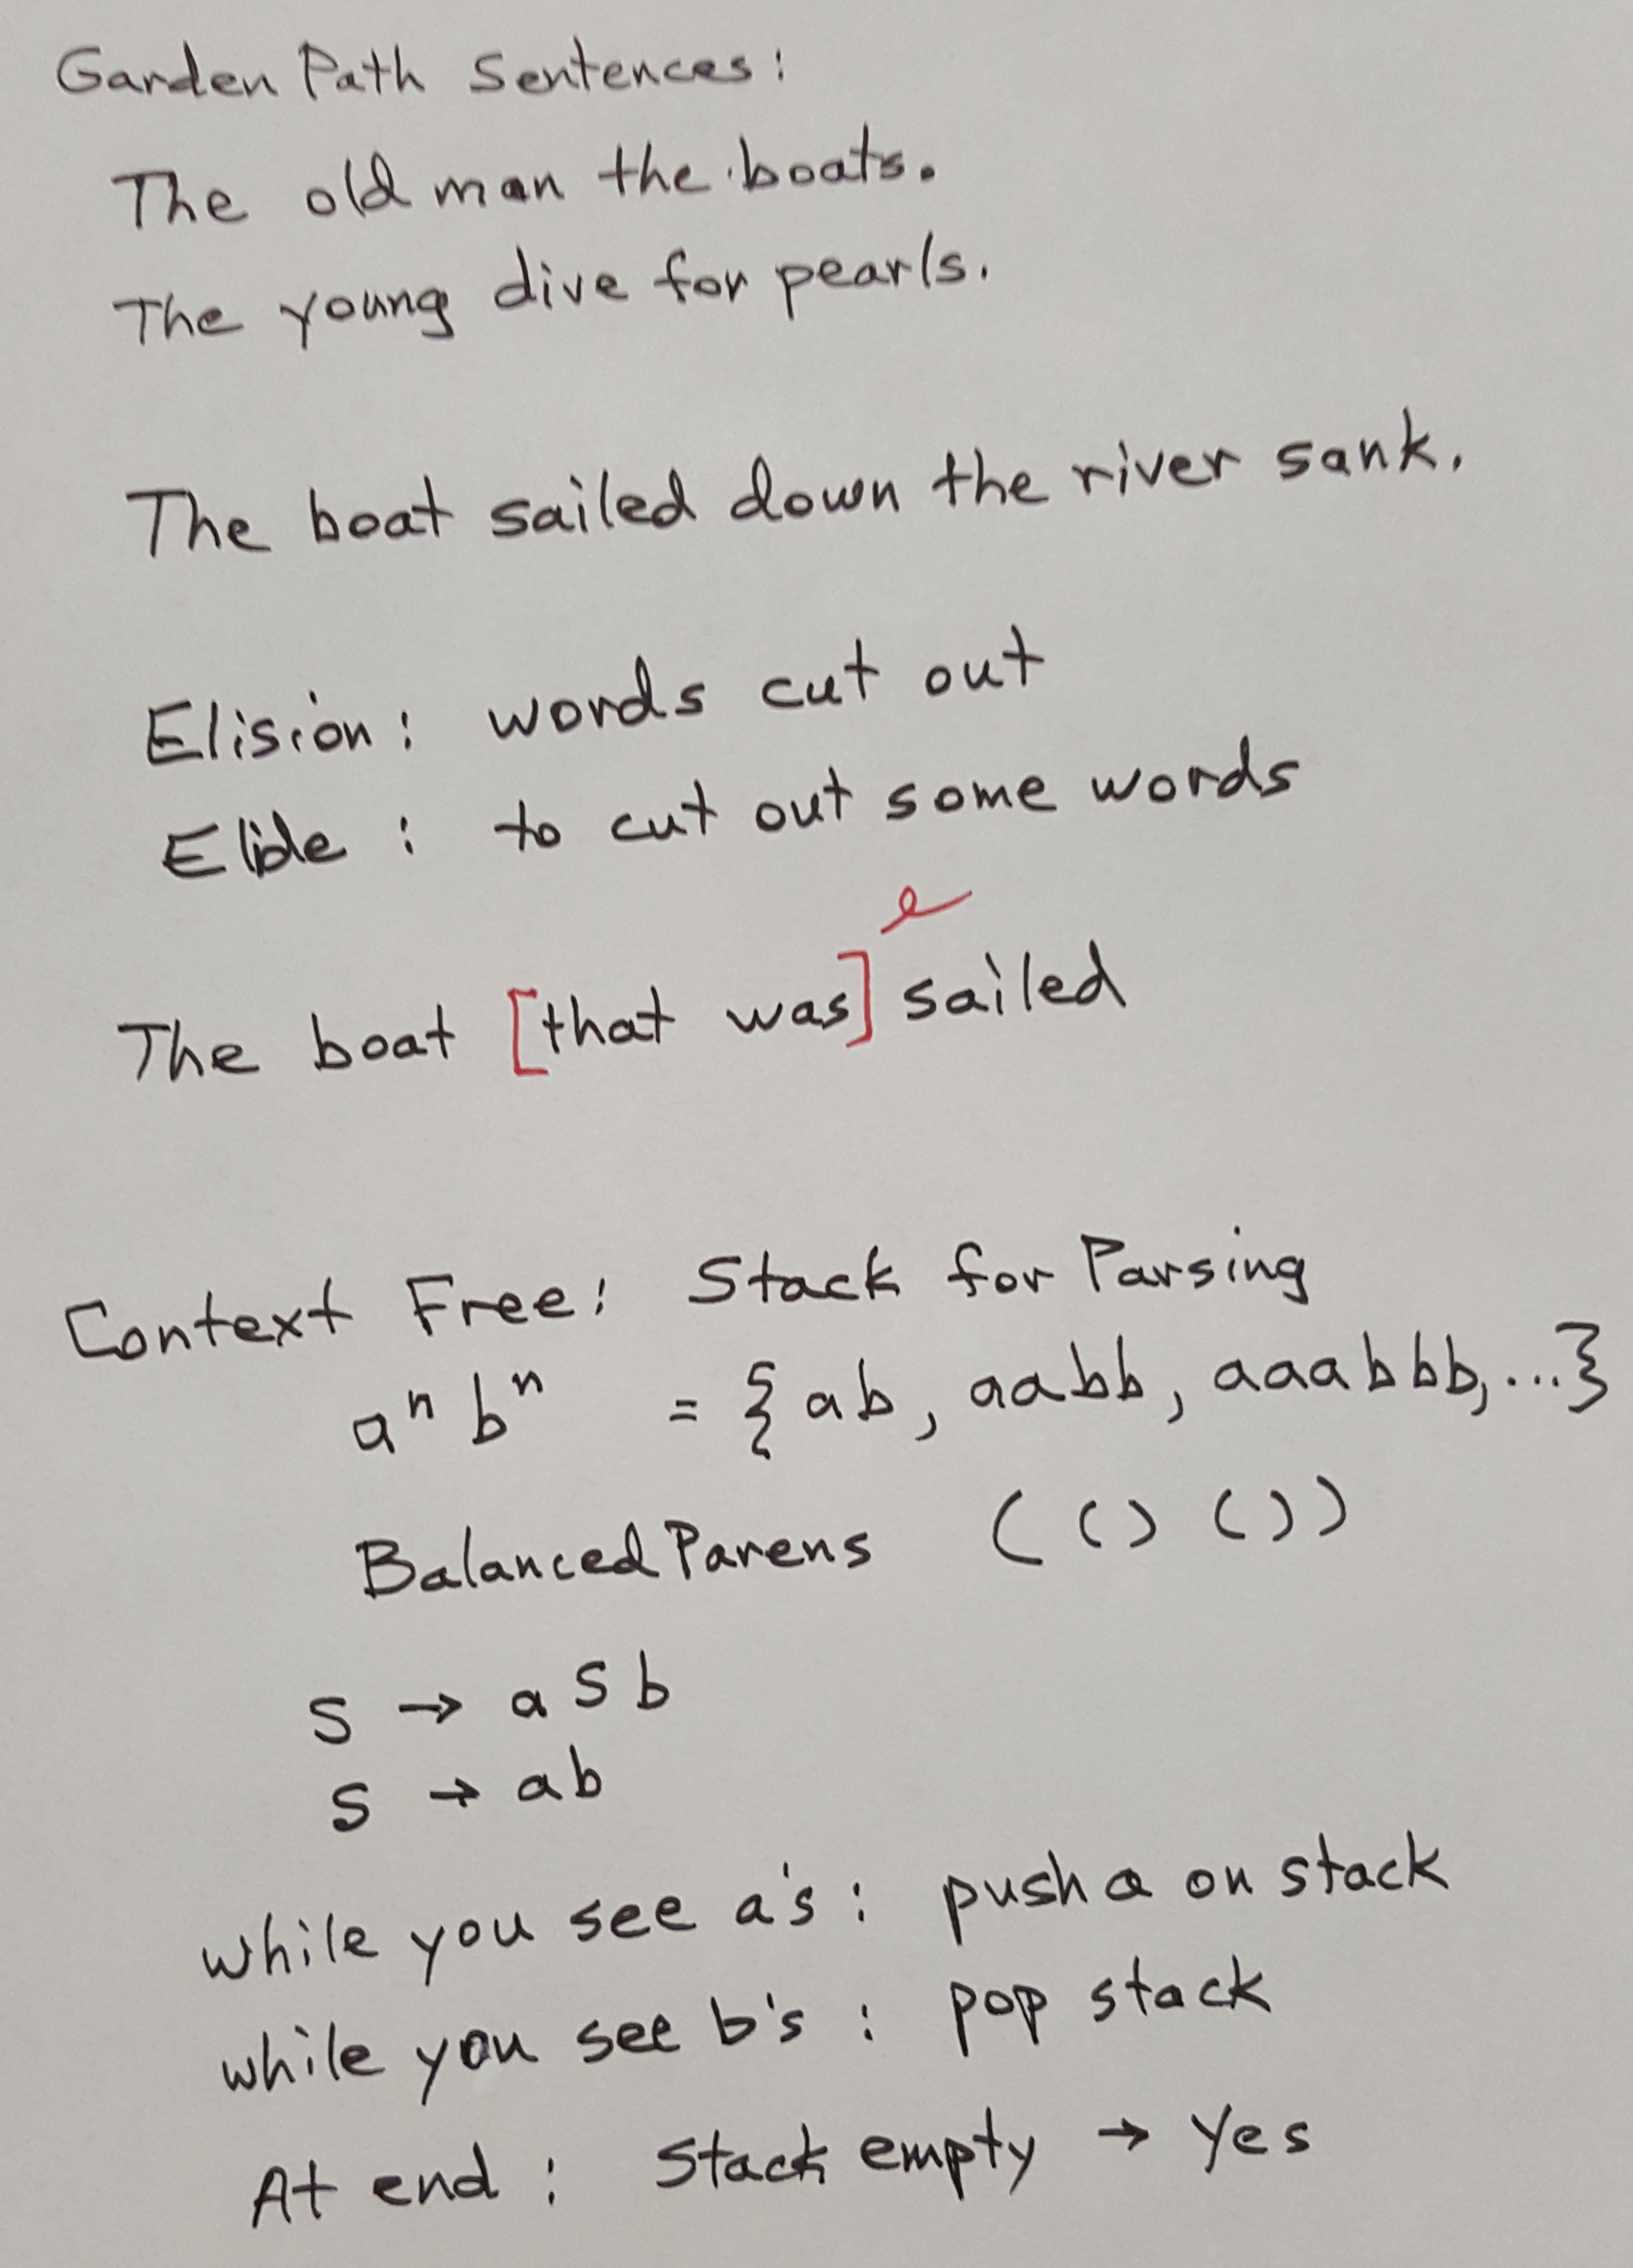 Garden Path Sentences:
The old man the boats.
The young dive for pearls.
The boat sailed down the river sank.
Elision: words cut out
Elide: to cut out some words
The boat [that was] sailed
Context Free: Stack for Parsing
aⁿ bⁿ = {ab, aabb, aaabbb, ...}
Balanced Parens (()())
S → a S b
S → ab
while you see a's: push a on stack
while you see b's: pop stack
At end: Stack empty → Yes